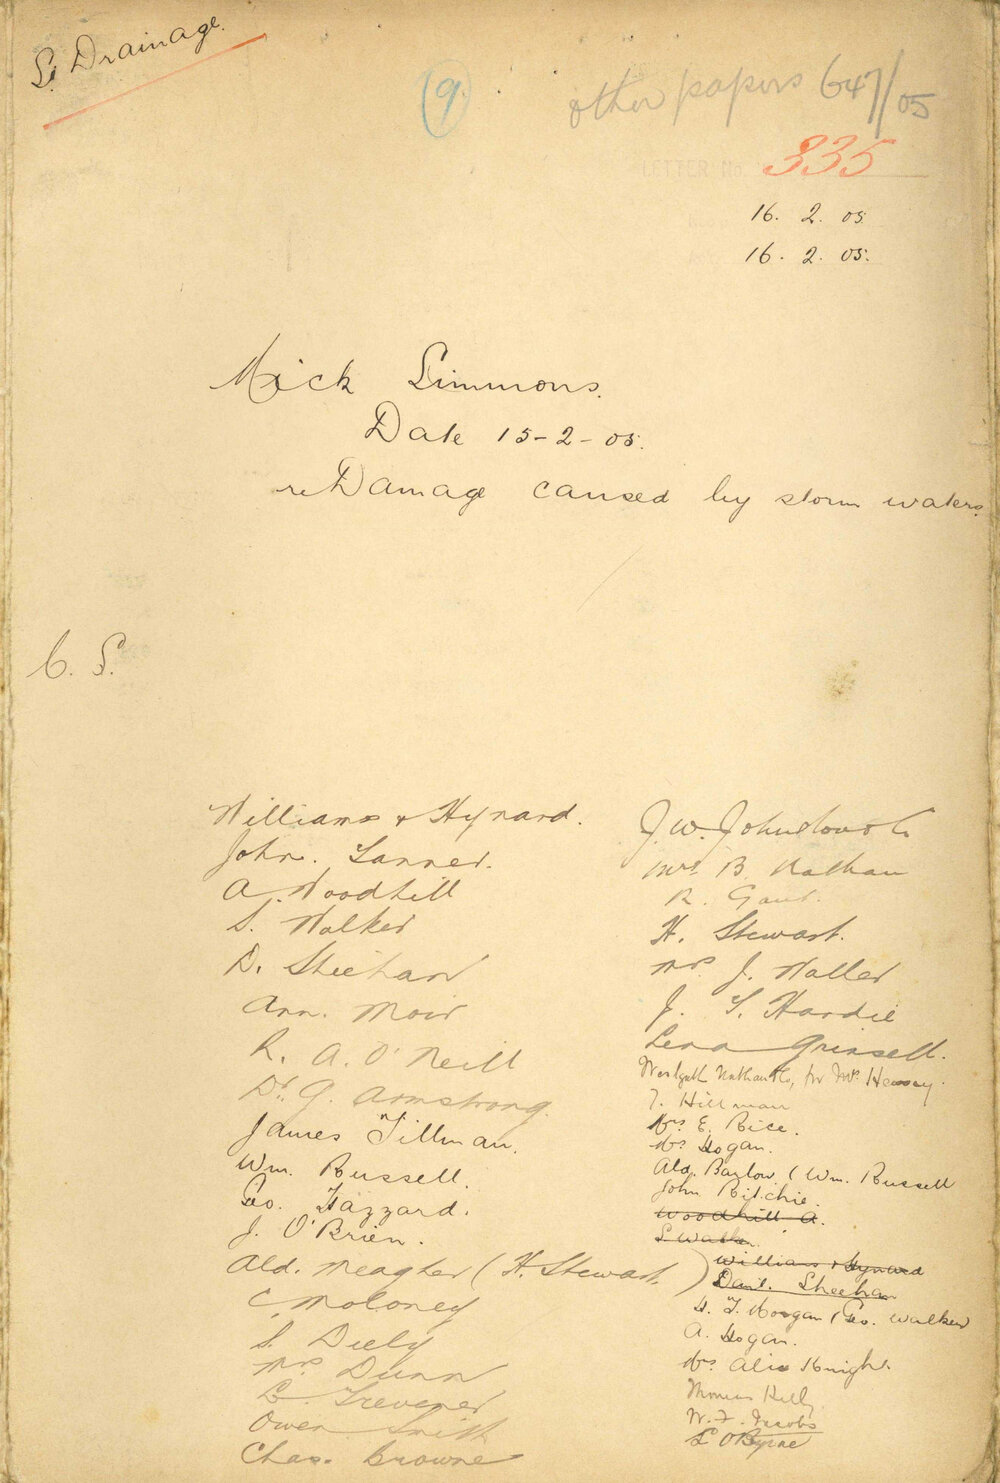 Drainage.
9
other papers 647/05
LETTER No. 335
16. 2. 05
16. 2. 05.
Mick Simmons.
Date 15-2-05.
re Damage caused by storm waters
C. S.
Williams & Hynard.
John. Tanner.
A. Woodhill
S. Walker
D. Sheehan
Ann. Moir
R. A. O'Neill
Dr. G. Armstrong.
James Tillman.
Wm. Russell.
Geo. Hazzard.
J. O'Brien.
Ald. Meagher (H. Stewart.)
C Moloney
S. Diely
Mrs Dunn
Trevener
Owen Smith
Chas. Browne
J. W. Johnstone &
Mrs B. Nathan
R. Gaut.
H. Stewart.
Mrs J. Waller
J. S. Hardie
Lena Grinsell.
Westgarth Nathan & Co, for Mr.
T. Hillman
Mrs E. Rice.
Mrs Hogan.
Ald. Barlow (Wm. Russell
John Ritchie.
Woodhill A.
S. Walker.
Williams & Hynard
Danl. Sheehan
H. T. (Geo. Walker
A. Hogan.
Mrs Alice Knight.
Thomas Kelly
W. F. Jacobs
L O'Byrne